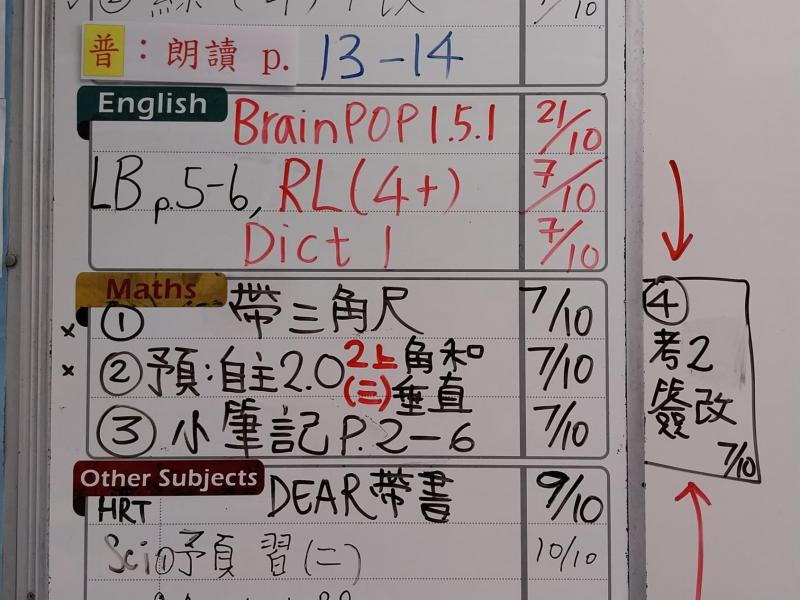 7/10
普：朗讀 p. 13-14
English
BrainPOP 1.5.1 21/10
LB p.5-6, RL(4+) 7/10
Dict 1 7/10
Maths
① 帶三角尺 7/10
②預:自主2.0 2上(三) 角和垂直 7/10
③小筆記 P.2-6 7/10
④
考2
簽改
7/10
Other Subjects
HRT DEAR帶書 9/10
Sci①予頁習(二) 10/10